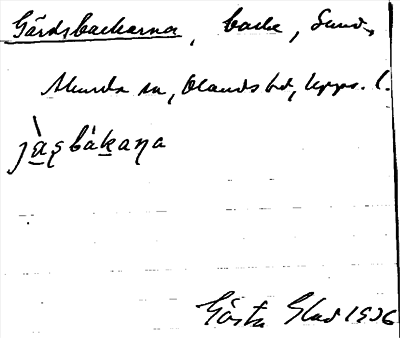 Gårdsbackarna, backe, Sund,
Alunda sn, Olands hd, Upps. l.
jàₒșbákaṇa
Gösta Glad 1936